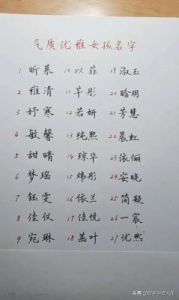 气质优雅女孩名字
1 昕 10 以菲 19 淑玉
2 雅清 11 芊彤 20 晗玥
3 妤寒 12 若妍 21 芳慧
4 敏馨 13 纯熙 22 晨虹
5 甜晴 14 琼华 23 依俪
6 梦瑶 15 炜彤 24 安晓
7 钰雯 16 依兰 25 简凝
8 佳仪 17 佳悦 26 一宸
9 宛琳 18 茜叶 27 优熙